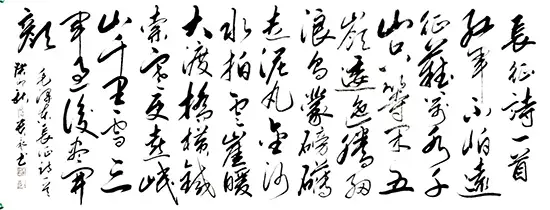 長征詩一首
紅軍不怕遠
征難萬水千
山只等閑五
嶺逶迤騰細
浪烏蒙磅礴
走泥丸金沙
水拍雲崖暖
大渡橋橫鐵
索寒更喜岷
山千里雪三
軍過後盡開
顏
毛澤東長征詩一首
癸巳秋月 书